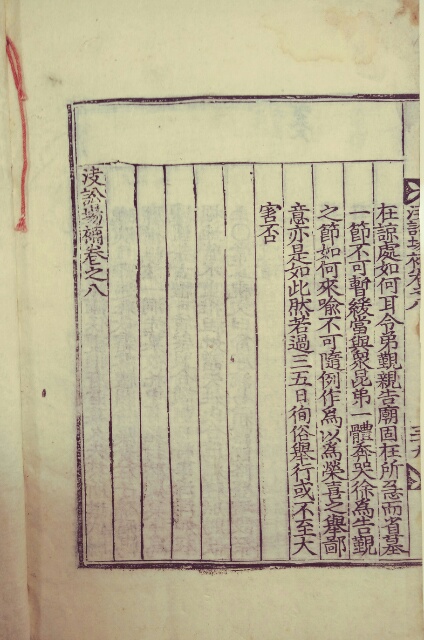 在諒處如何耳令弟覲親告廟固在所急而省墓
一節不可暫緩當與衆昆弟一體奔哭徐爲告覲
之節如何來喩不可隨例作爲以爲榮喜之擧鄙
意亦是如此然若過三五日徇俗擧行或不至大
害否
卷之八